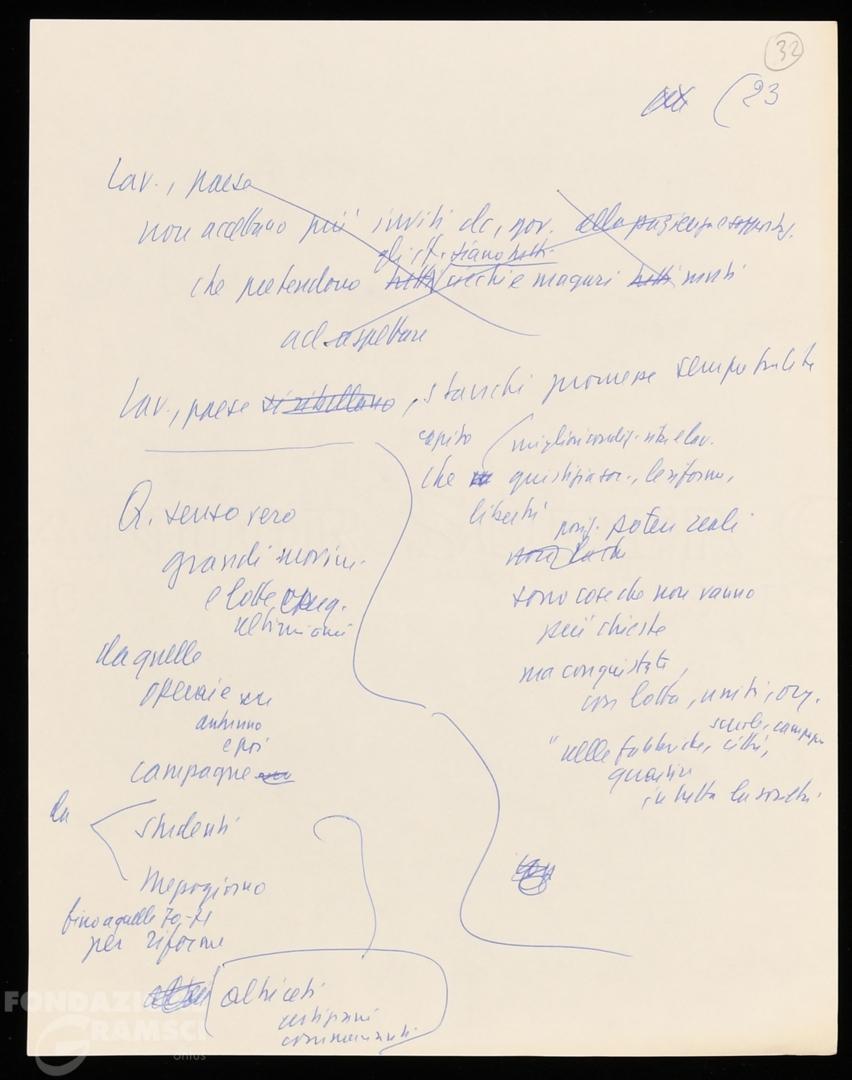 32
(23
Lav., paese
non accettano più inviti dc, gov. alla pazienza e
gli it. siano tutti
che pretendono tutti vecchi e magari tutti morti
ad aspettare
Lav., paese si ribellano, stanchi promesse sempre tradite
capito
migliori condiz. vita e lav.
che giustizia soc., le riforme,
libertà
posiz. potere reali
sono cose che non vanno
più chieste
ma conquistate,
con lotta, uniti, org.
scuole, campagne
"nelle fabbriche, città,
quartieri
in tutta la società.
Q. senso vero
grandi movim.
e lotte
ultimi anni
da quelle
operaie
autunno
e poi
campagne
da
studenti
Mezzogiorno
fino a quelle 70-71
per riforme
altri ceti
artigiani
commercianti
FONDAZIONE
GRAMSCI
onlus